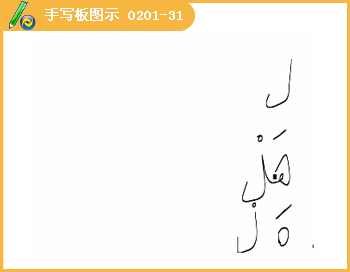 手写板图示 0201-31
ل
هَلْ
هَ لْ